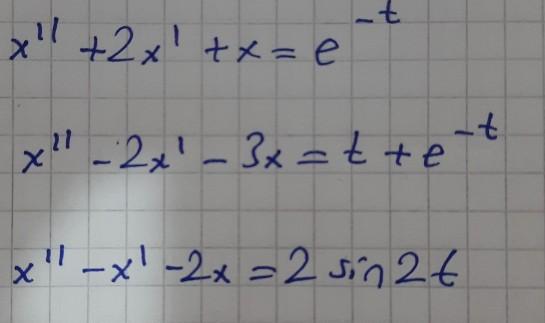 x'' + 2x' + x = e^{-t}
x'' - 2x' - 3x = t + e^{-t}
x'' - x' - 2x = 2 sin 2t